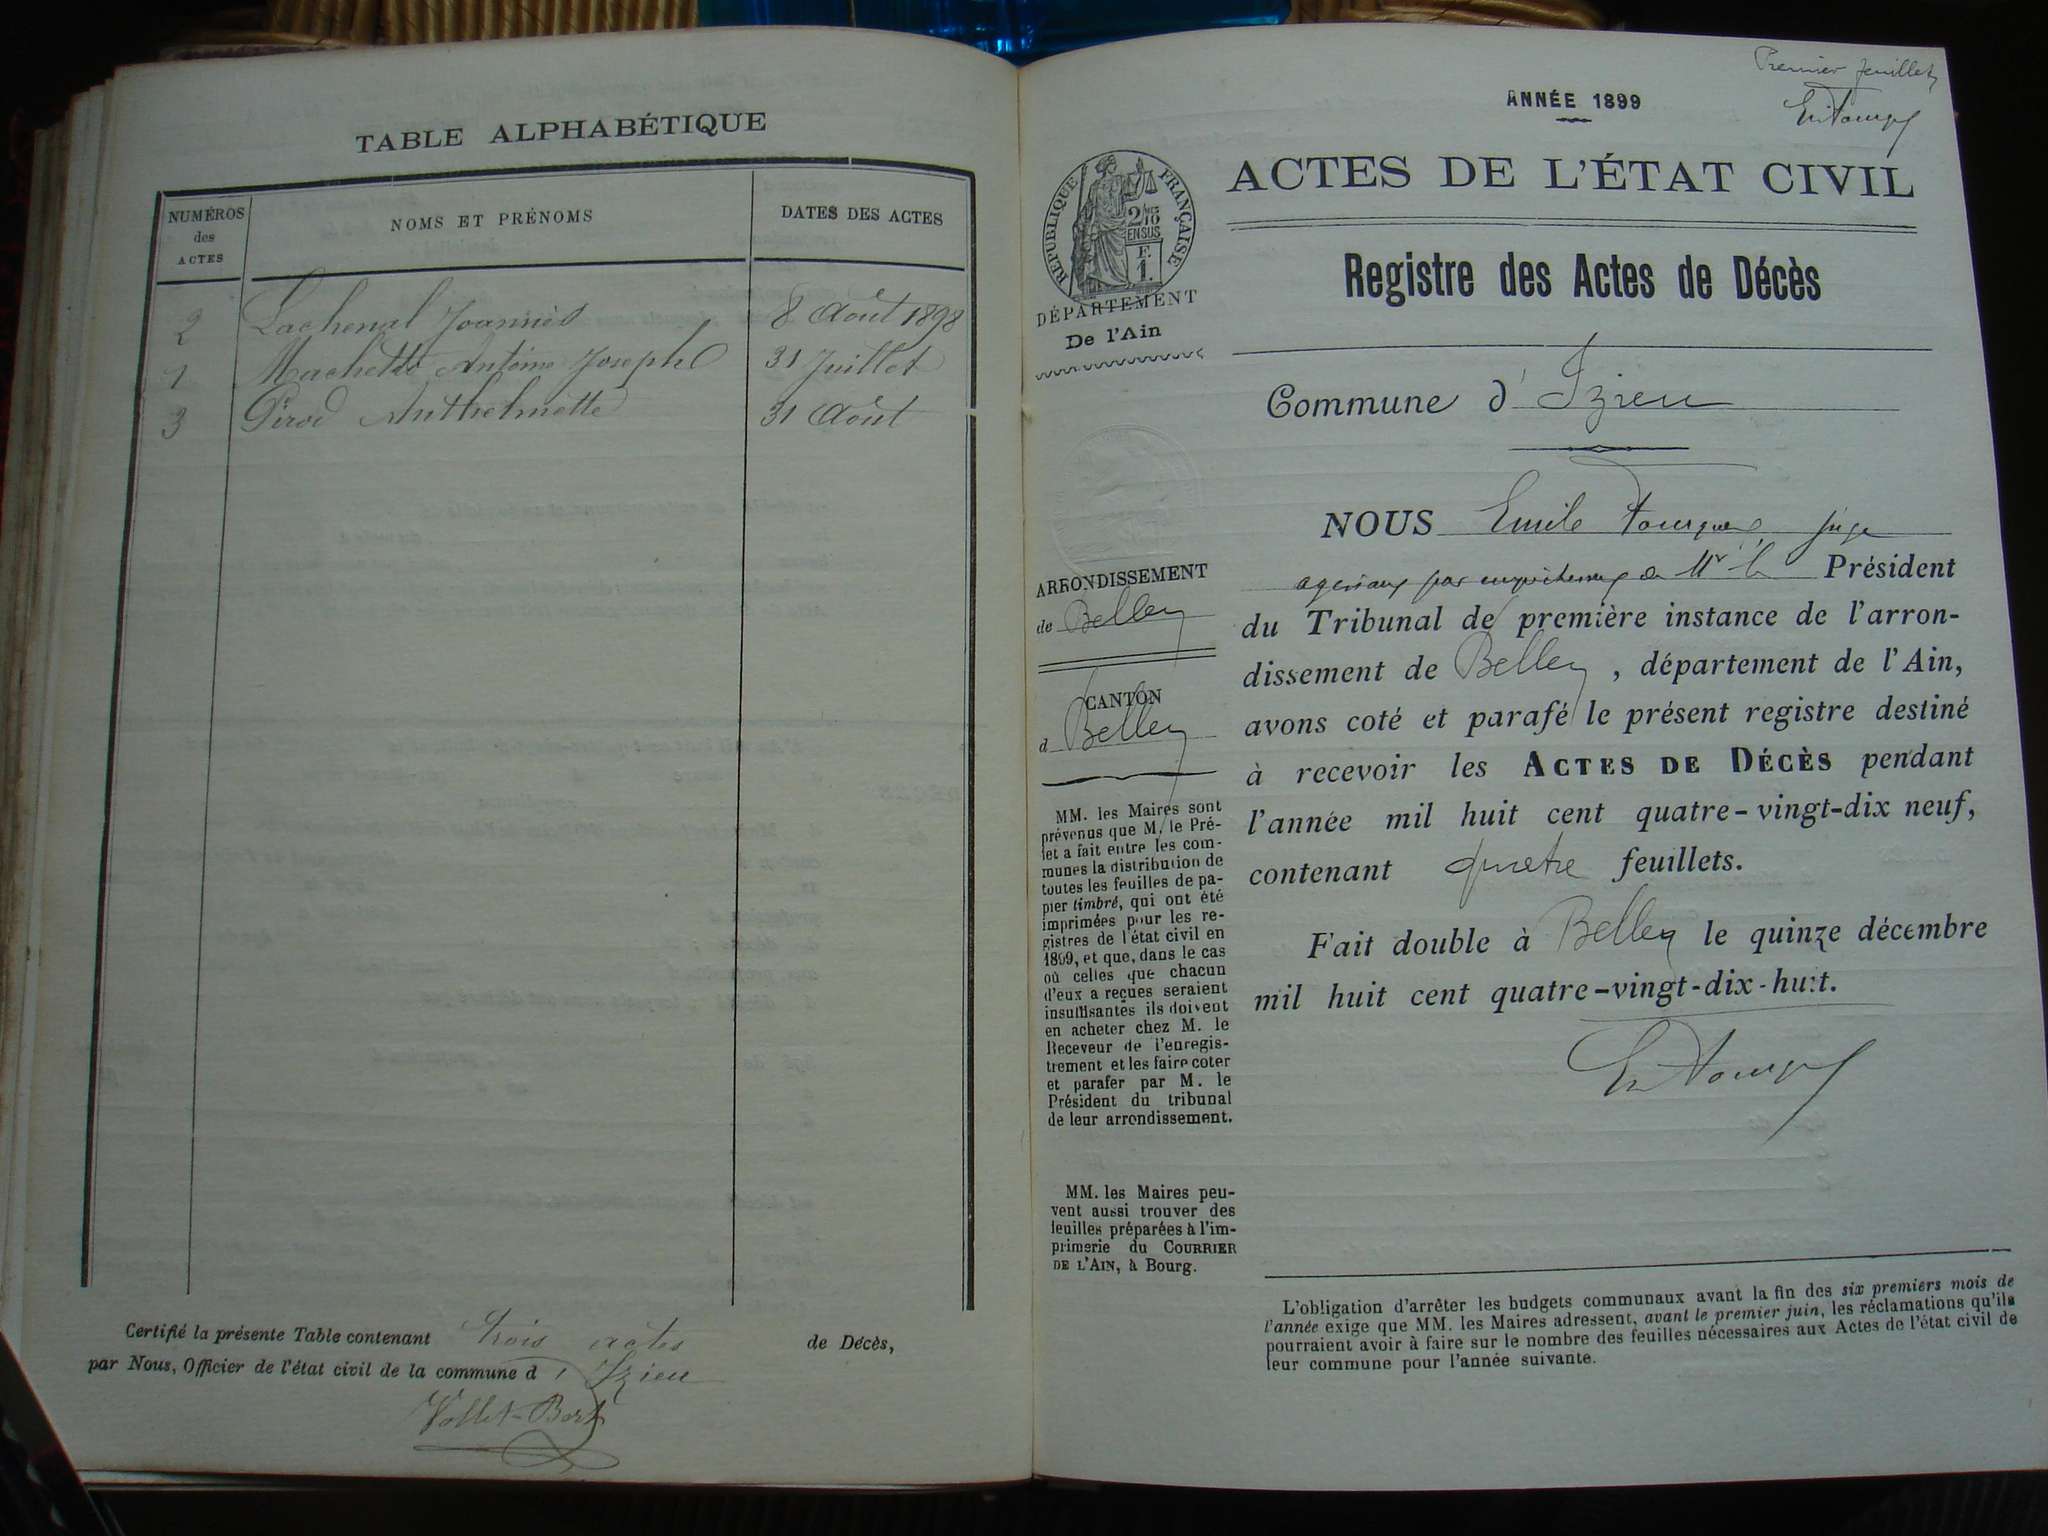 TABLE ALPHABÉTIQUE
NUMÉROS des ACTES
NOMS ET PRÉNOMS
DATES DES ACTES
2 Lachenal Joannès 8 Août 1898
1 Machette Antoine Joseph 31 Juillet
3 Pirod Anthelmette 31 Août
Certifié la présente Table contenant trois actes de Décès,
par Nous, Officier de l'état civil de la commune d'Izieu
Vollet-Bert
Premier feuillet
ANNÉE 1899
RÉPUBLIQUE FRANÇAISE
2/10 EN SUS
F. 1.
DÉPARTEMENT
De l'Ain
ACTES DE L'ÉTAT CIVIL
Registre des Actes de Décès
Commune d'Izieu
ARRONDISSEMENT
de Belley
CANTON
d Belley
MM. les Maires sont
prévenus que M. le Pré-
fet a fait entre les com-
munes la distribution de
toutes les feuilles de pa-
pier timbré, qui ont été
imprimées pour les re-
gistres de l'état civil en
1899, et que, dans le cas
où celles que chacun
d'eux a reçues seraient
insuffisantes ils doivent
en acheter chez M. le
Receveur de l'enregis-
trement et les faire coter
et parafer par M. le
Président du tribunal
de leur arrondissement.
MM. les Maires peu-
vent aussi trouver des
feuilles préparées à l'im-
primerie du COURRIER
DE L'AIN, à Bourg.
NOUS Emile juge
par empêchement de Mr le Président
du Tribunal de première instance de l'arron-
dissement de Belley, département de l'Ain,
avons coté et parafé le présent registre destiné
à recevoir les ACTES DE DÉCÈS pendant
l'année mil huit cent quatre-vingt-dix neuf,
contenant quatre feuillets.
Fait double à Belley le quinze décembre
mil huit cent quatre-vingt-dix-huit.
L'obligation d'arrêter les budgets communaux avant la fin des six premiers mois de
l'année exige que MM. les Maires adressent, avant le premier juin, les réclamations qu'ils
pourraient avoir à faire sur le nombre des feuilles nécessaires aux Actes de l'état civil de
leur commune pour l'année suivante.